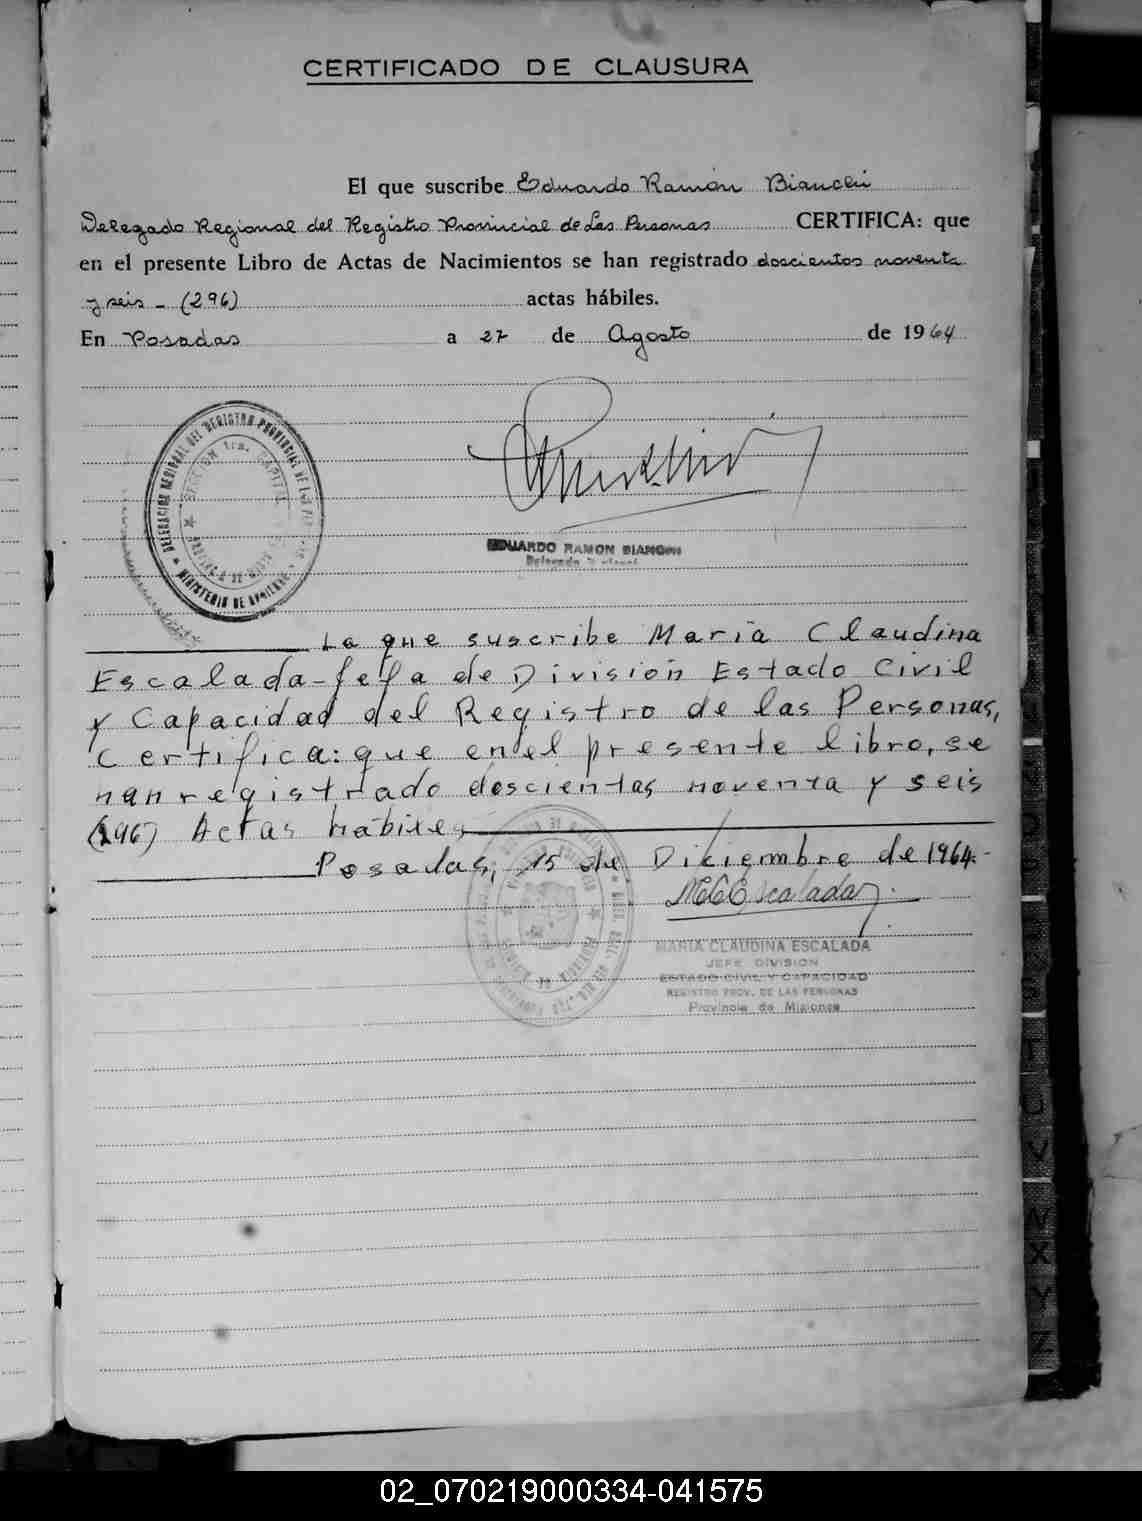 CERTIFICADO DE CLAUSURA
El que suscribe Eduardo Ramón Bianchi
Delegado Regional del Registro Provincial de Las Personas CERTIFICA: que
en el presente Libro de Actas de Nacimientos se han registrado doscientos noventa
y seis - (296) actas hábiles.
En Posadas a 27 de Agosto de 1964
DELEGACION REGIONAL DEL REGISTRO PROVINCIAL DE LAS
SECCION 1ra. CAPITAL
MINISTERIO DE
EDUARDO RAMON BIANCHI
Delegado
La que suscribe María Claudina
Escalada - Jefa de División Estado Civil
y Capacidad del Registro de las Personas,
Certifica: que en el presente libro, se
han registrado doscientas noventa y seis
(296) Actas hábiles
Posadas, 15 de Diciembre de 1964.-
MCEscalada
MARIA CLAUDINA ESCALADA
JEFE DIVISION
ESTADO CIVIL Y CAPACIDAD
REGISTRO PROV. DE LAS PERSONAS
Provincia de Misiones
V
W
X
Y
Z
02_070219000334-041575